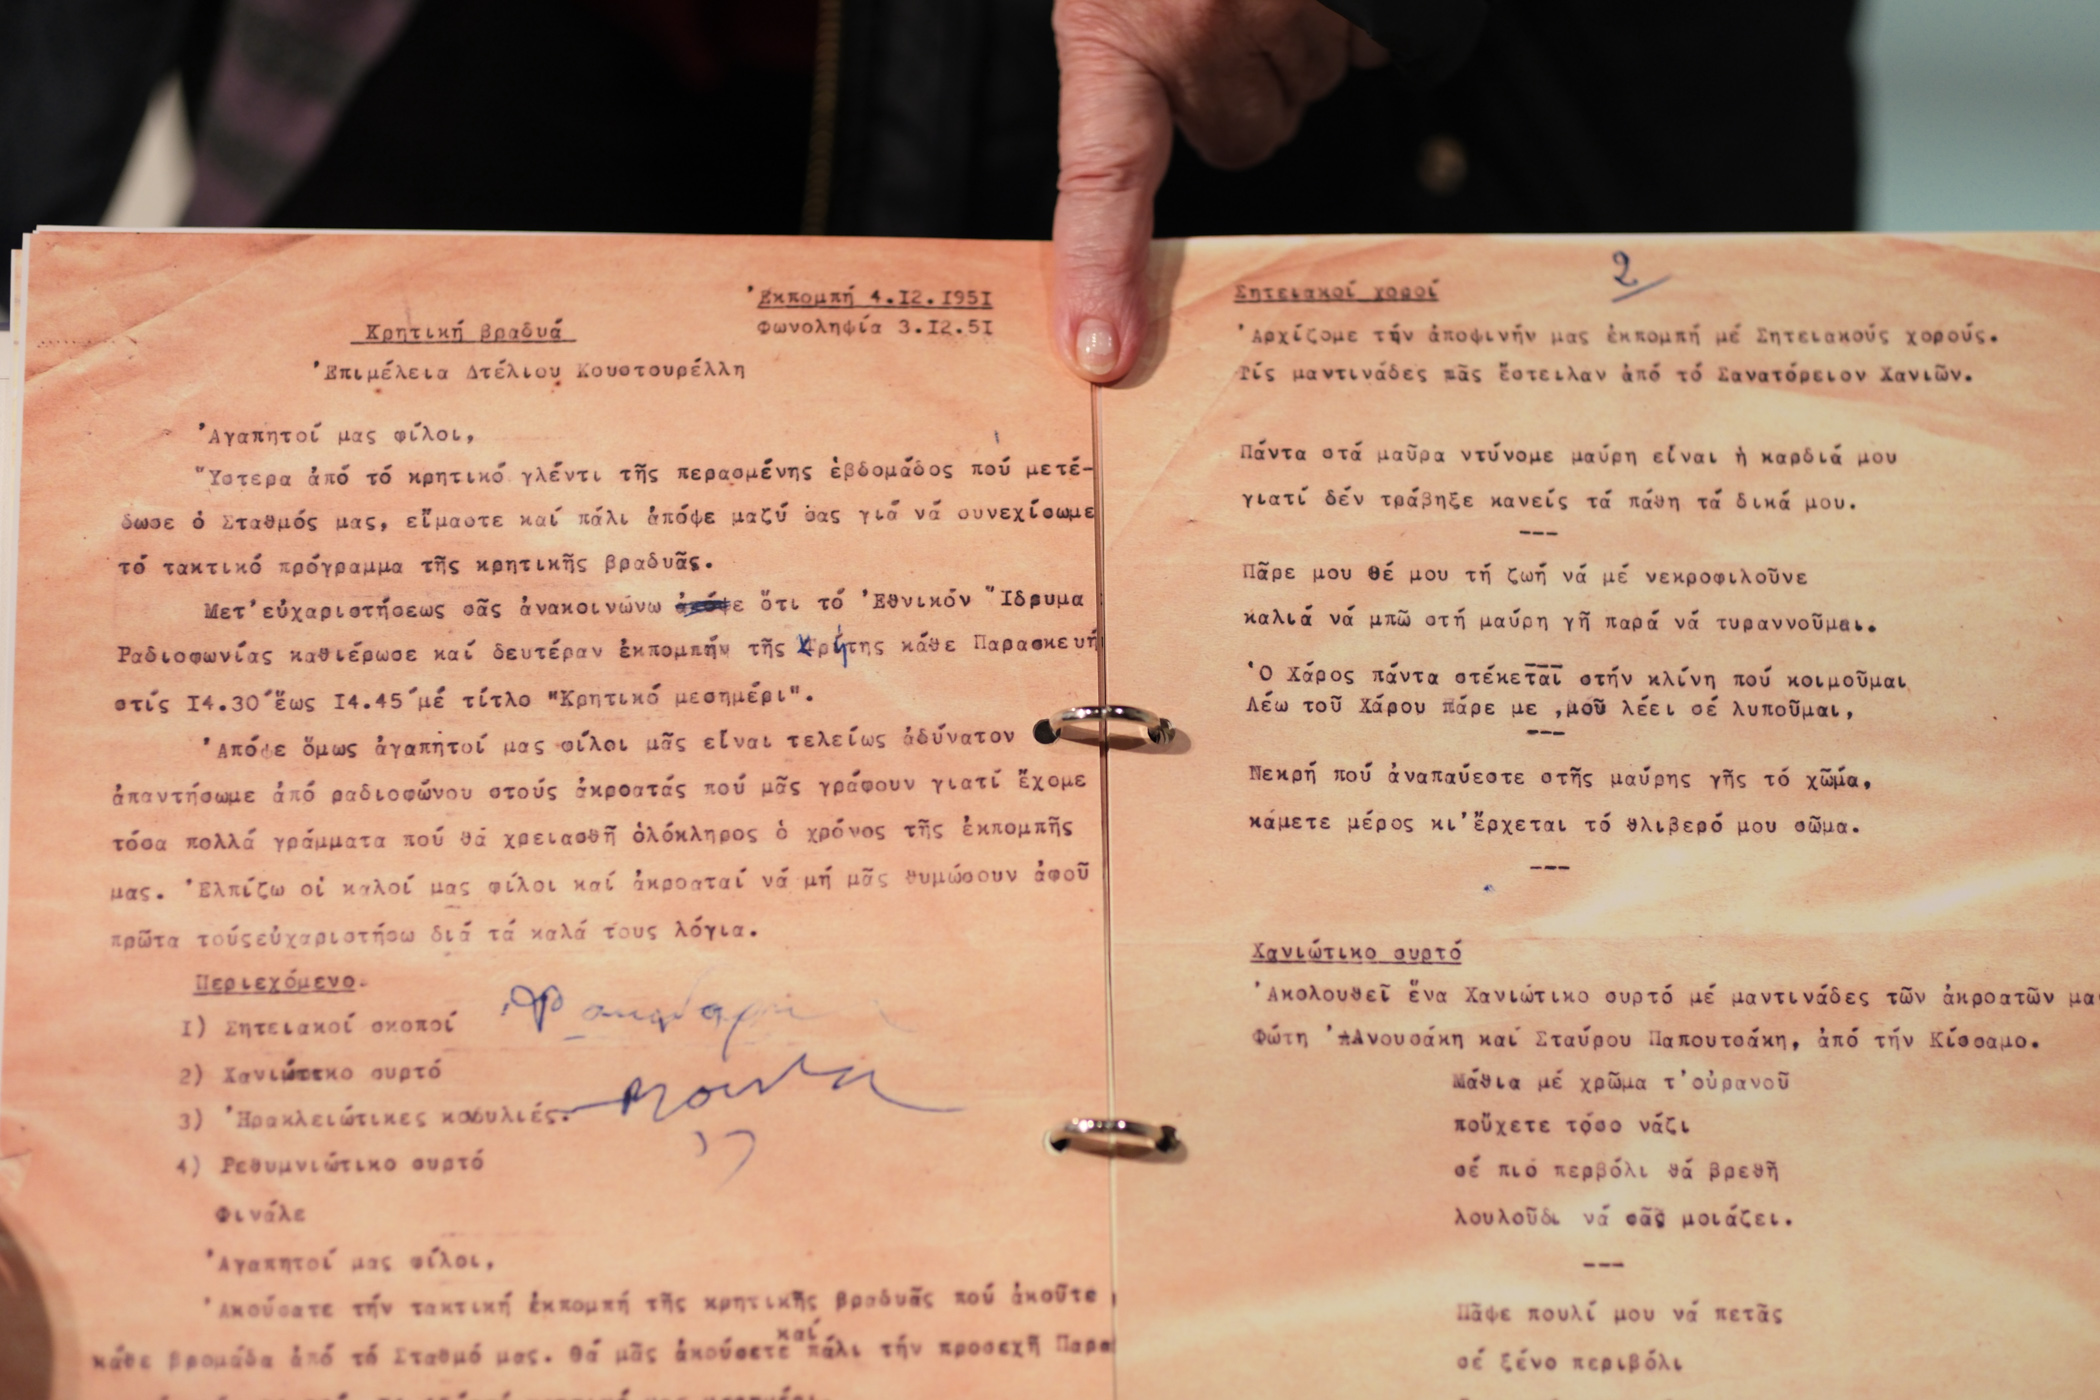 Ἐκπομπή 4.I2.195I
Φωνοληψία 3.I2.5I
Κρητική βραδυά
Ἐπιμέλεια Στέλιου Κουστουρέλλη
Ἀγαπητοί μας φίλοι,
Ὕστερα ἀπό τό κρητικό γλέντι τῆς περασμένης ἑβδομάδος πού μετέ-
δωσε ὁ Σταθμός μας, εἴμαστε καί πάλι ἀπόψε μαζύ σας γιά νά συνεχίσωμε
τό τακτικό πρόγραμμα τῆς κρητικῆς βραδυᾶς.
Μετ'εὐχαριστήσεως σᾶς ἀνακοινώνω ὅτι τό Ἐθνικόν Ἵδρυμα
Ραδιοφωνίας καθιέρωσε καί δευτέραν ἐκπομπήν τῆς Κρήτης κάθε Παρασκευή
στίς I4.30'ἕως I4.45'μέ τίτλο "Κρητικό μεσημέρι".
Ἀπόψε ὅμως ἀγαπητοί μας φίλοι μᾶς εἶναι τελείως ἀδύνατον
ἀπαντήσωμε ἀπό ραδιοφώνου στούς ἀκροατάς πού μᾶς γράφουν γιατί ἔχομε
τόσα πολλά γράμματα πού θά χρειασθῆ ὁλόκληρος ὁ χρόνος τῆς ἐκπομπῆς
μας. Ἐλπίζω οἱ καλοί μας φίλοι καί ἀκροαταί νά μή μᾶς θυμώσουν ἀφοῦ
πρῶτα τούςεὐχαριστήσω διά τά καλά τους λόγια.
Περιεχόμενο.
I) Σητειακοί σκοποί
2) Χανιώτικο συρτό
3) Ἡρακλειώτικες κοδυλιές.
4) Ρεθυμνιώτικο συρτό
Φινάλε
Ἀγαπητοί μας φίλοι,
Ἀκούσατε τήν τακτική ἐκπομπή τῆς κρητικῆς βραδυᾶς πού ἀκοῦτε
κάθε βρομάδα ἀπό τό Σταθμό μας. Θά μᾶς ἀκούσετε καί πάλι τήν προσεχῆ Παρα
2
Σητειακοί χοροί
Ἀρχίζομε τήν ἀποψινήν μας ἐκπομπή μέ Σητειακούς χορούς.
Τίς μαντινάδες μᾶς ἔστειλαν ἀπό τό Σανατόρειον Χανιῶν.
Πάντα στά μαῦρα ντύνομε μαύρη εἶναι ἡ καρδιά μου
γιατί δέν τράβηξε κανείς τά πάθη τά δικά μου.
---
Πᾶρε μου θέ μου τή ζωή νά μέ νεκροφιλοῦνε
καλιά νά μπῶ στή μαύρη γῆ παρά νά τυραννοῦμαι.
---
Ὁ Χάρος πάντα στέκεται στήν κλίνη πού κοιμοῦμαι
Λέω τοῦ Χάρου πάρε με ,μοῦ λέει σέ λυποῦμαι,
---
Νεκρή πού ἀναπαύεστε στῆς μαύρης γῆς τό χῶμα,
κάμετε μέρος κι'ἔρχεται τό θλιβερό μου σῶμα.
---
Χανιώτικο συρτό
Ἀκολουθεῖ ἕνα Χανιώτικο συρτό μέ μαντινάδες τῶν ἀκροατῶν μα
Φώτη Ἀνουσάκη καί Σταύρου Παπουτσάκη, ἀπό τήν Κίσσαμο.
Μάθια μέ χρῶμα τ'οὐρανοῦ
ποὔχετε τόσο νάζι
σέ πιό περβόλι θά βρεθῆ
λουλοῦδι νά σᾶς μοιάζει.
---
Πᾶψε πουλί μου νά πετᾶς
σέ ξένο περιβόλι